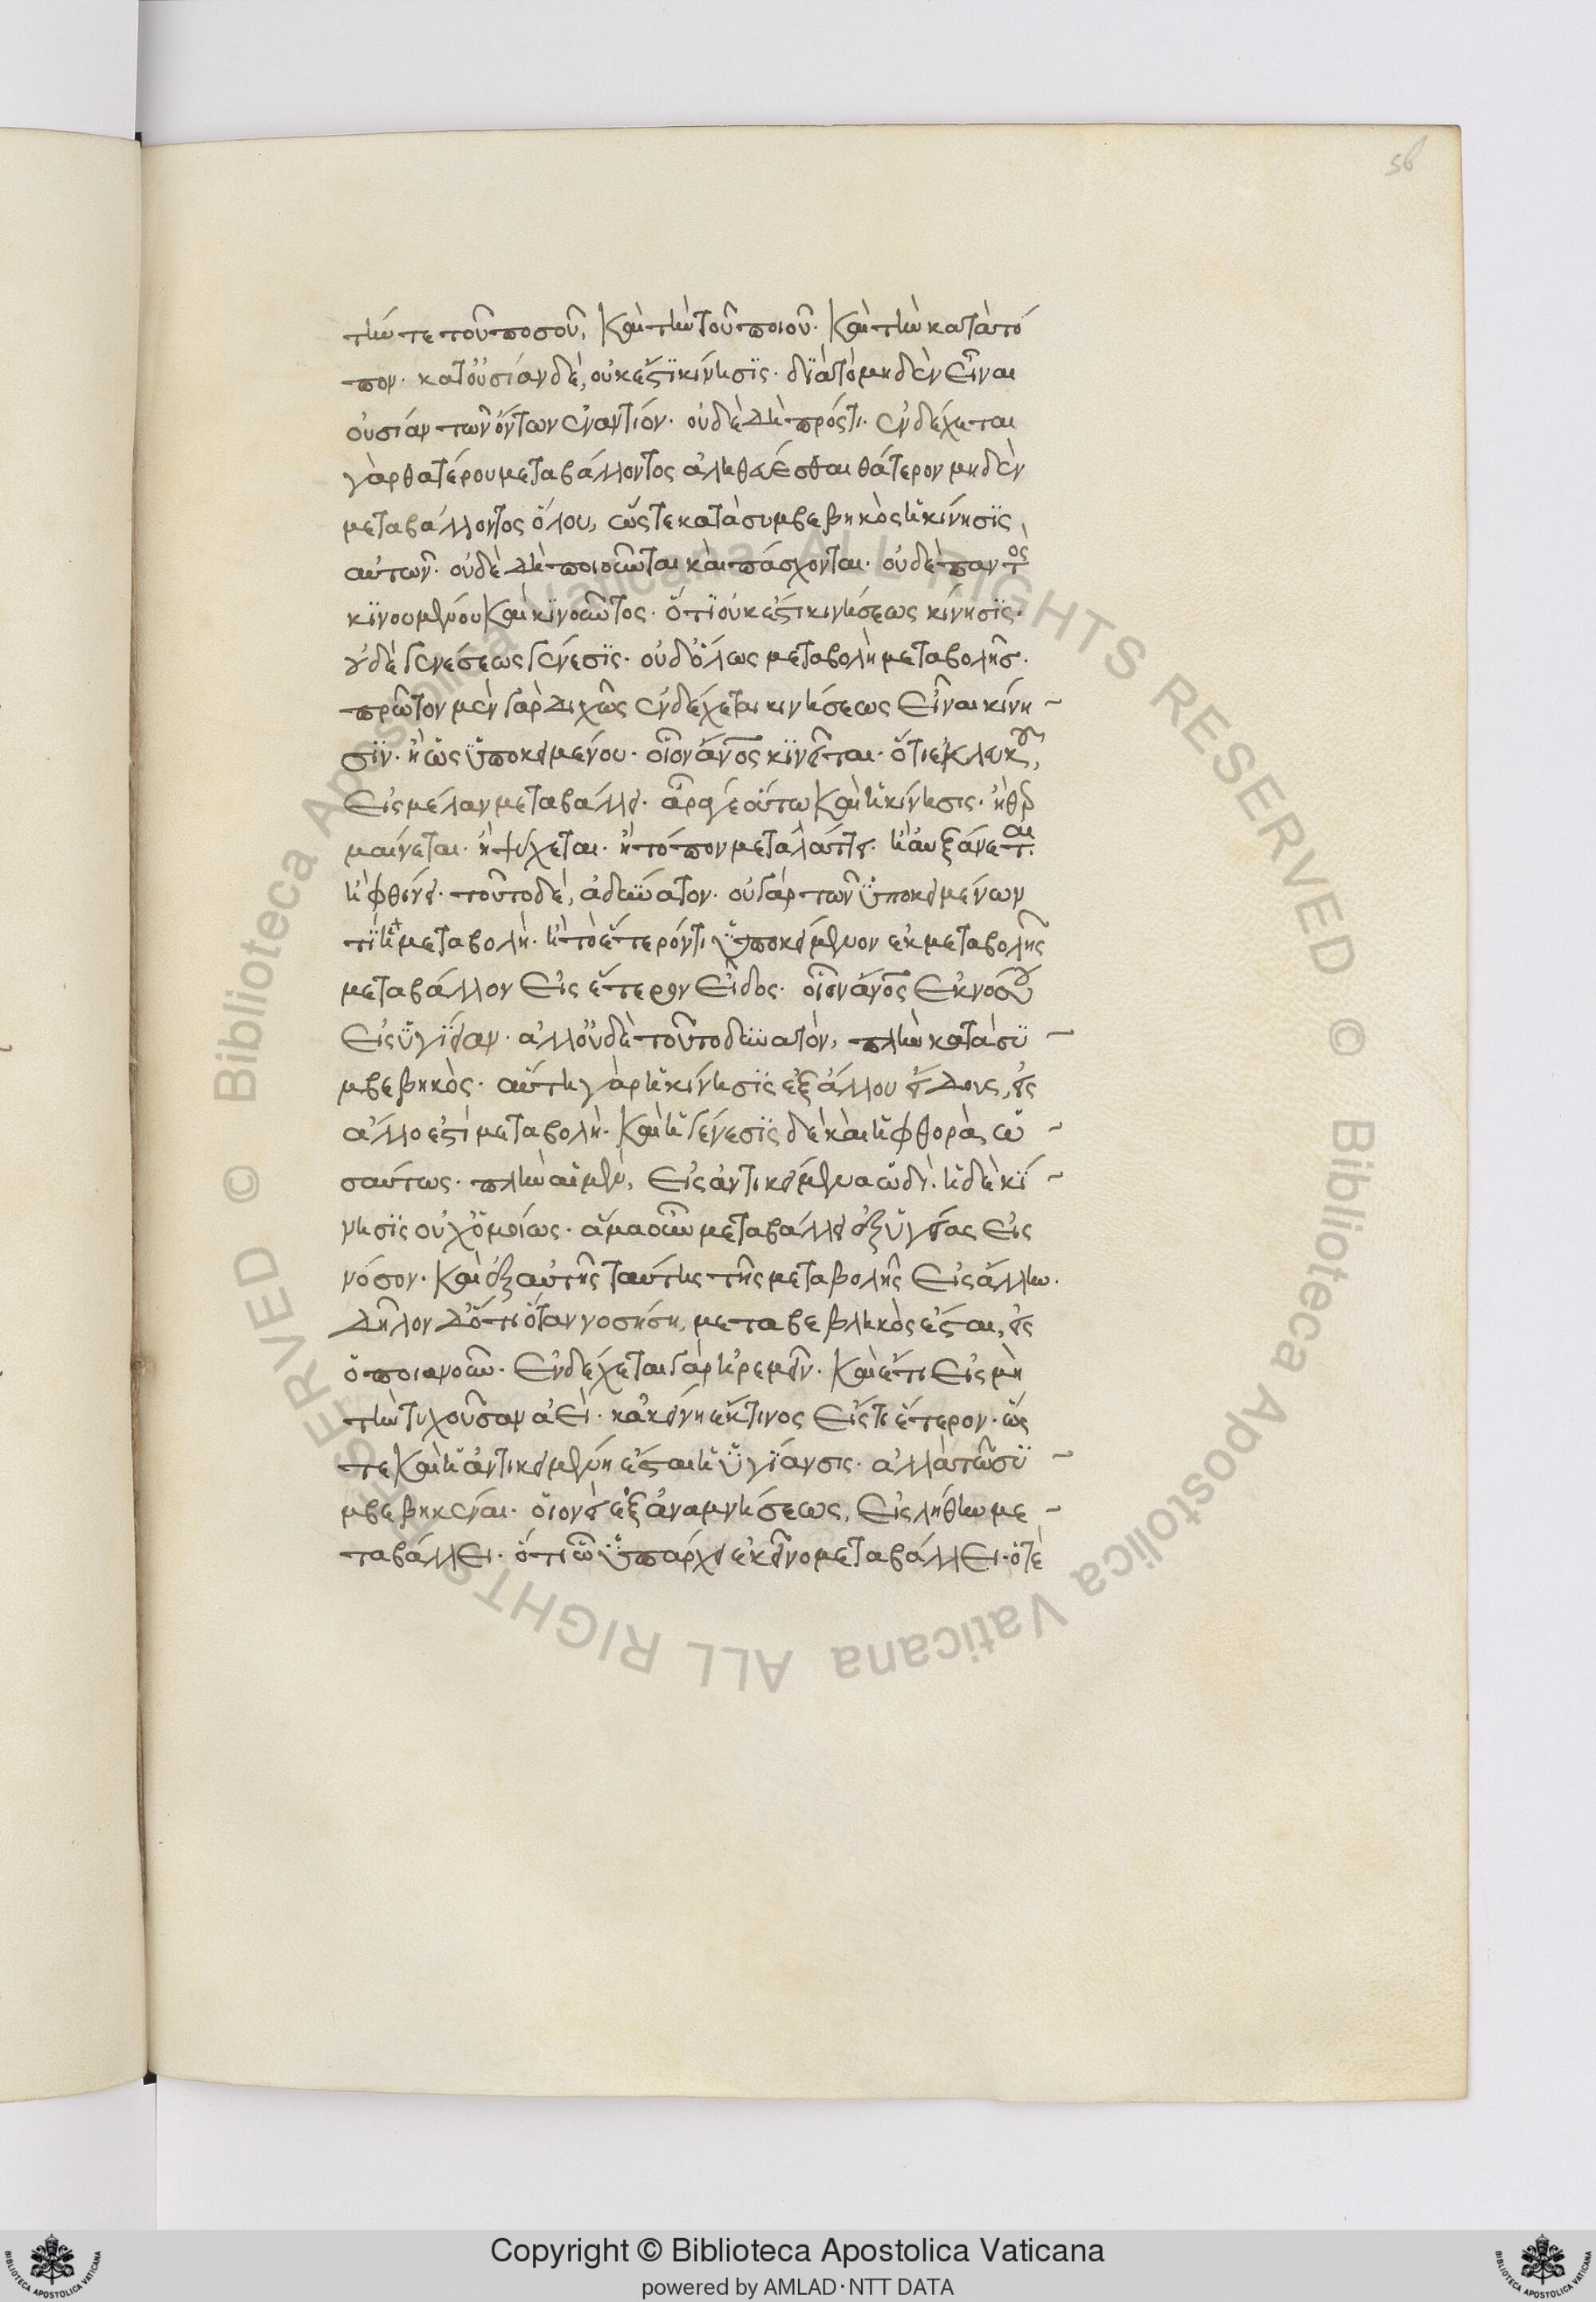 58
τήν τε τοῦ ποσοῦ, καὶ τὴν τοῦ ποιοῦ· καὶ τὴν κατὰ τό
πον· κατ οὐσίαν δὲ, οὐκ ἔστι κίνησις· διὰ τὸ μηδὲν εἶναι
οὐσίαν τῶν ὄντων ἐναντίον· οὐδὲ δὴ πρός τι· ἐνδέχεται
γὰρ θατέρου μεταβάλλοντος ἀληθεύεσθαι θάτερον μηδὲν
μεταβάλλοντος ὅλου, ὥστε κατὰ συμβεβηκὸς ἡ κίνησις
αὐτῶν· οὐδὲ δὴ ποιοῦνται καὶ πάσχονται· οὐδὲ παντὸς
κινουμένου καὶ κινοῦντος· ὅτι οὐκ ἔστι κινήσεως κίνησις·
οὐδὲ γενέσεως γένεσις· οὐδ ὅλως μεταβολὴ μεταβολῆς·
πρῶτον μὲν γὰρ διχῶς ἐνδέχεται κινήσεως εἶναι κίνη
σιν· ἢ ὡς ὑποκειμένου· οἷον ἄνος κινεῖται· ὅτι ἐκ λευκοῦ,
εἰς μέλαν μεταβάλλει· ἆρά γε οὕτω καὶ ἡ κίνησις· ἢ θερ
μαίνεται· ἢ ψύχεται· ἢ τόπον μεταλάττει· ἢ αὐξάνεται
ἢ φθίνει· τοῦτο δὲ, ἀδύνατον· οὐ γὰρ τῶν ὑποκειμένων
τι ἡ μεταβολή· ἢ τὸ ἕτερόν τι ὑποκείμενον ἐκ μεταβολῆς
μεταβάλλον εἰς ἕτερον εἶδος· οἷον ἄνος ἐκ νόσου
εἰς ὑγίειαν· ἀλλ οὐδὲ τοῦτο δυνατὸν, πλὴν κατὰ συ
μβεβηκὸς· αὕτη γὰρ ἡ κίνησις ἐξ ἄλλου εἴδους, εἰς
ἄλλο ἐστὶ μεταβολή· καὶ ἡ γένεσις δὲ καὶ ἡ φθορὰ, ὡ
σαύτως· πλὴν αἱ μὲν, εἰς ἀντικείμενα ὡδί· ἡ δὲ κί
νησις οὐχ ὁμοίως· ἅμα οὖν μεταβάλλει ἐξ ὑγείας εἰς
νόσον· καὶ ἐξ αὐτῆς ταύτης τῆς μεταβολῆς εἰς ἄλλην·
δῆλον δ ὅτι ὅταν νοσήσῃ, μεταβεβληκὸς ἔσται, εἰς
ὁποιανοῦν· ἐνδέχεται γὰρ ἠρεμεῖν· καὶ ἔτι εἰς μὴ
τὴν τυχοῦσαν ἀεί· κἀκείνη ἔκ τινος εἴς τι ἕτερον· ὥς
τε καὶ ἡ ἀντικειμένη ἔσται ἡ ὑγίανσις· ἀλλὰ τῷ συ
μβεβηκέναι· οἷον εἰ ἐξ ἀναμνήσεως, εἰς λήθην με
ταβάλλει· ὅτι ᾧ ὑπάρχει ἐκεῖνο μεταβάλλει· ὁτὲ
Copyright © Biblioteca Apostolica Vaticana
powered by AMLAD·NTT DATA